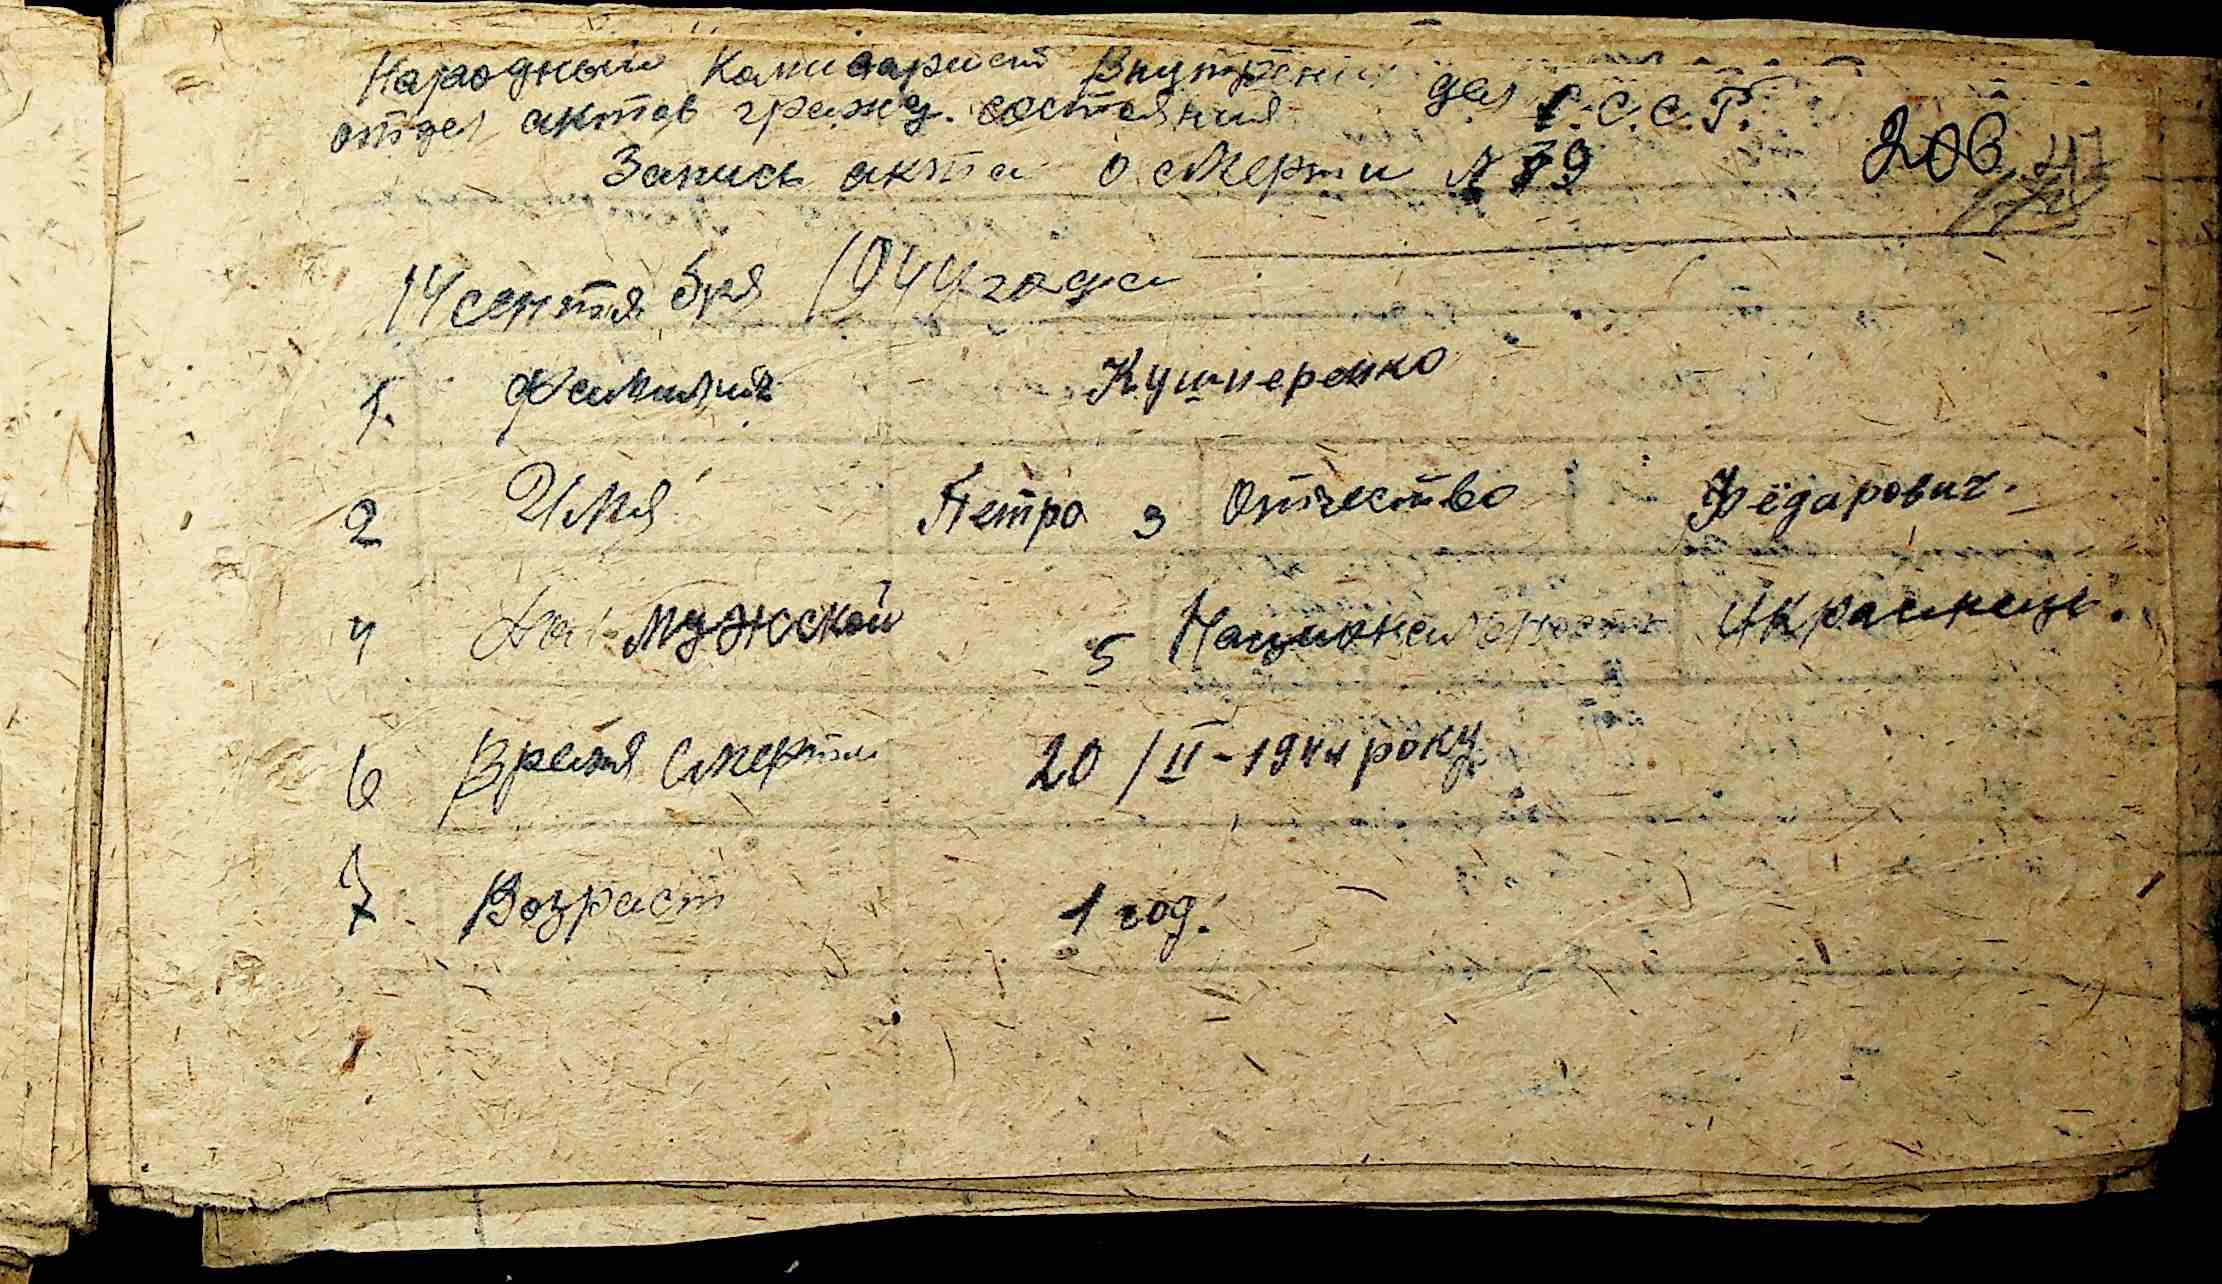 Народный Комисариат Внутрених дел С.С.С.Р.
отдел актов гражд. состояния
Запись акта о смерти № 79
206
14 сентября 1944 года
1. Фамилия Кушнеренко
2 Имя Петро 3 Отчество Фёдарович.
4 Пол мужской 5 Националность Украинець.
6 Время смерти 20/II-1944 року
7 Возраст 1 год.